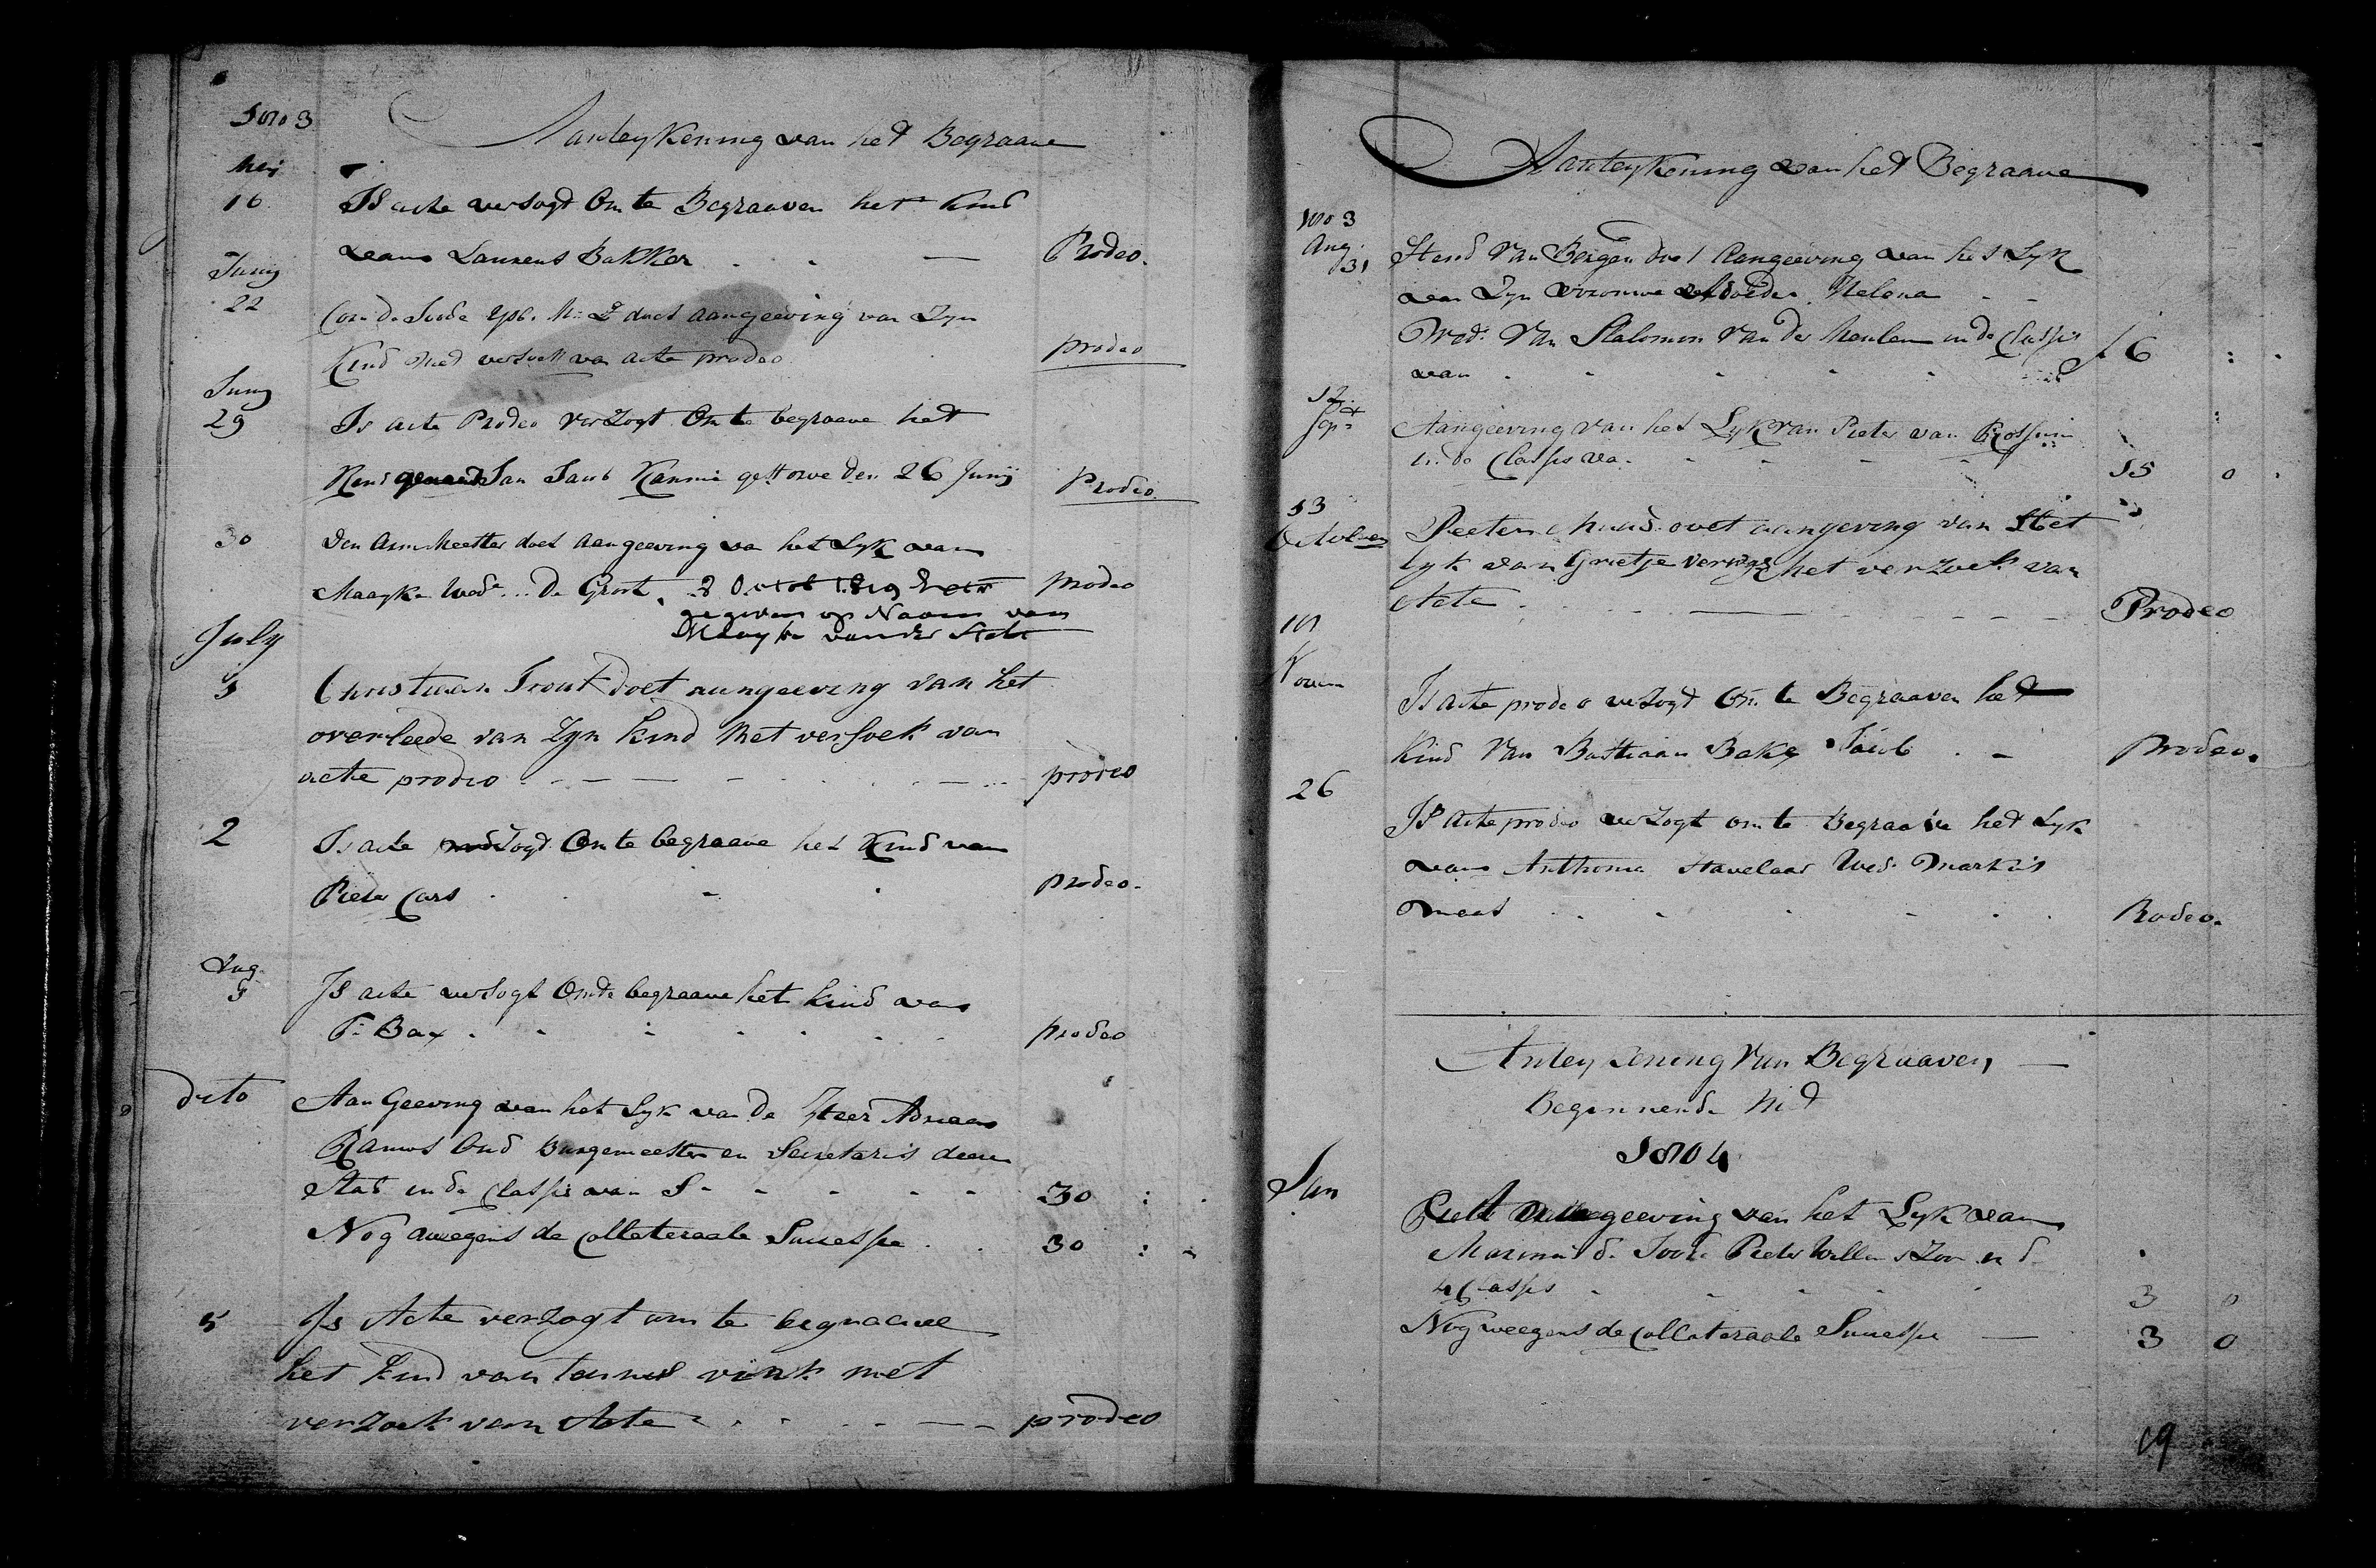 1803
Aanteykening van het Begraave
Mei
16 Is acte versogt Om te Begraaven het kind
van Laurens Bakker Prodeo.
Junij
22 Cor. de Joode doet aangeeving van Zyn
Kind met versoek van acte prodeo prodeo
Junij
29 Is acte Prodeo verzogt Om te begraave het
Kind genaamd Jan Jacob Kamme gestorve den 26 Junij Prodeo
30 Den Armmeester doet Aangeeving va het Lyk van
Maayke Wede. De Groot, 2 Octob 1819 Extr prodeo
gegeven op Naam van
Maayke van der
July
1 Christiaan Trout doet aangeeving van het
overleede van Zyn Kind Met versoek van
acte prodeo prodeo
2 Is acte versogt Om te begraave het Kind van
Pieter Cars prodeo.
Aug.
5 Is acte versogt Om te begraave het kind van
P: Bax prodeo
dito Aan Geeving van het Lyk van De Heer Adriaan
Ramus Oud Burgemeester en Secretaris deeser
Stad in de Classis van f 30 : .
Nog weegens de Collateraale Successie 30 : .
5 Is Acte verzogt om te begraave
het kind van Teunis vink met
verzoek van Acte prodeo
Aanteykening van het Begraave
1803
Aug.
31 Hend Van Bergen doet Aangeeving van het Lyk
van Zyn vrouwe Moeder, Helena
Wed: Van Salomon Van der Meulen in de Classis
van f 6 : .
12
Sept Aangeeving van het Lyk van Pieter van Rossum
in de Classis va 15 0 .
13
October Peeter doet aangeving van Het
lyk van Grietje met verzoek van
Acte Prodeo
18
Novem Is acte prodeo versogt Om te Begraaven het
Kind Van Bastiaan Bake Jacob Prodeo.
26 Is acte prodeo verzogt om te Begraave het Lyk
van Anthonia Havelaar Wed: Markus
Smeets Prodeo.
Anteykening Van Begraaven
Beginnende Met
1804
Jan Aangeeving van het Lyk van
Marinus d. Joode Pieter Willemszoon in d
4 Classis 3 0
Nog weegens de Collateraale Successie 3 0
19